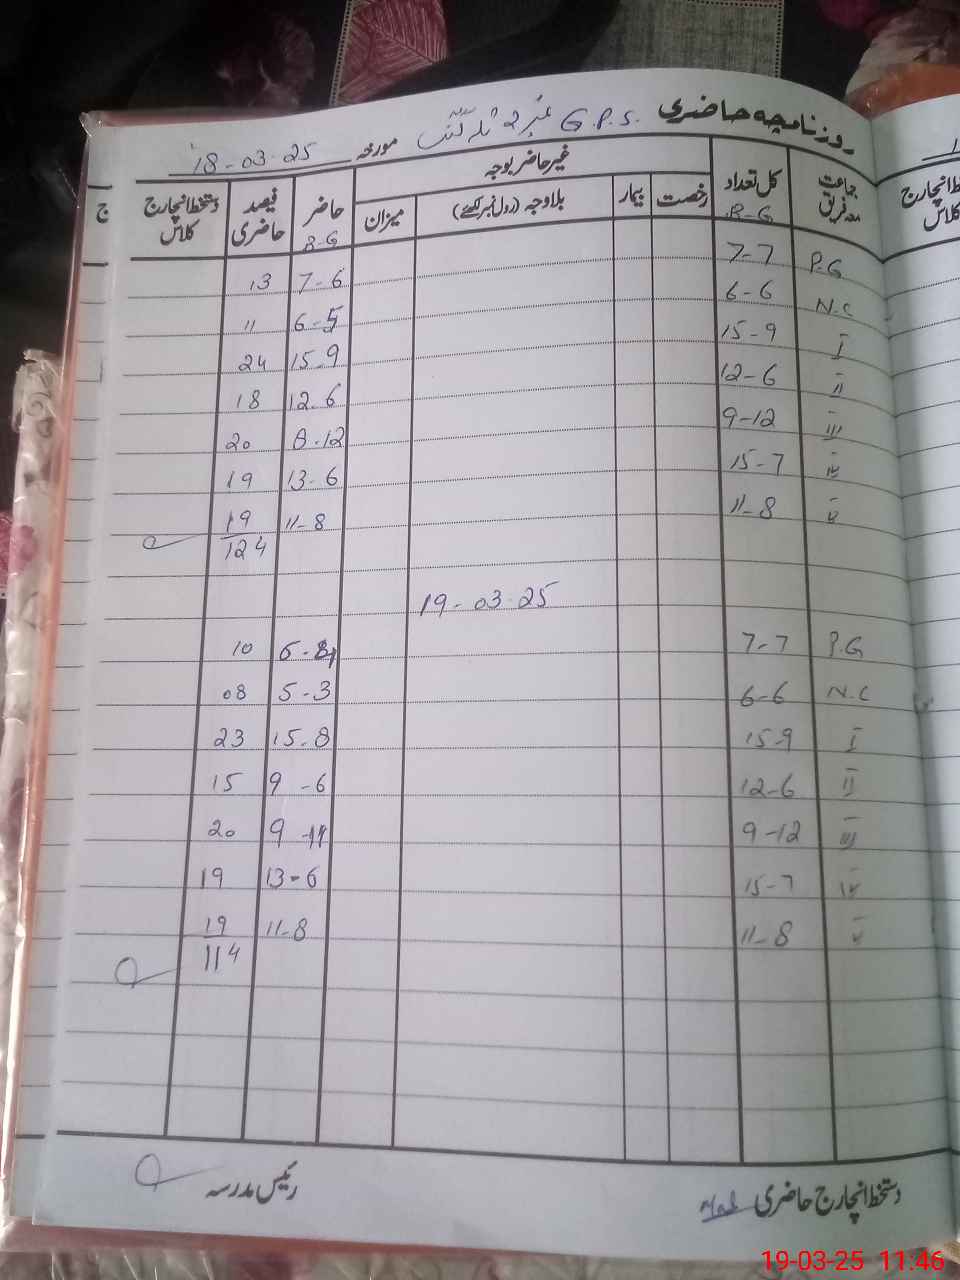 روزنامچہ حاضری G.P.S. نمبر 2 مورخہ 18-03-25
جماعت معہ فریق کل تعداد B-G غیر حاضر بوجہ رخصت بیمار بلاوجہ (رول نمبر لکھئے) میزان حاضر B-G فیصد حاضری دستخط انچارج کلاس
P.G 7-7 7-6 13
N.C 6-6 6-5 11
I 15-9 15-9 24
II 12-6 12-6 18
III 9-12 8-12 20
IV 15-7 13-6 19
V 11-8 11-8 19
124
19-03-25
P.G 7-7 10
N.C 6-6 5-3 08
I 15-9 15-8 23
II 12-6 9-6 15
III 9-12 9-11 20
IV 15-7 13-6 19
V 11-8 11-8 19
114
دستخط انچارج حاضری رئیس مدرسہ
دستخط انچارج کلاس
19-03-25 11:46